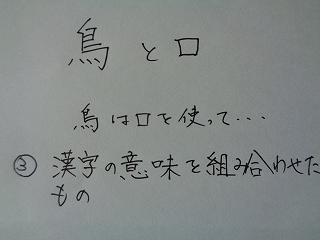 鳥と口
鳥は口を使って・・・
③ 漢字の意味を組み合わせた
もの